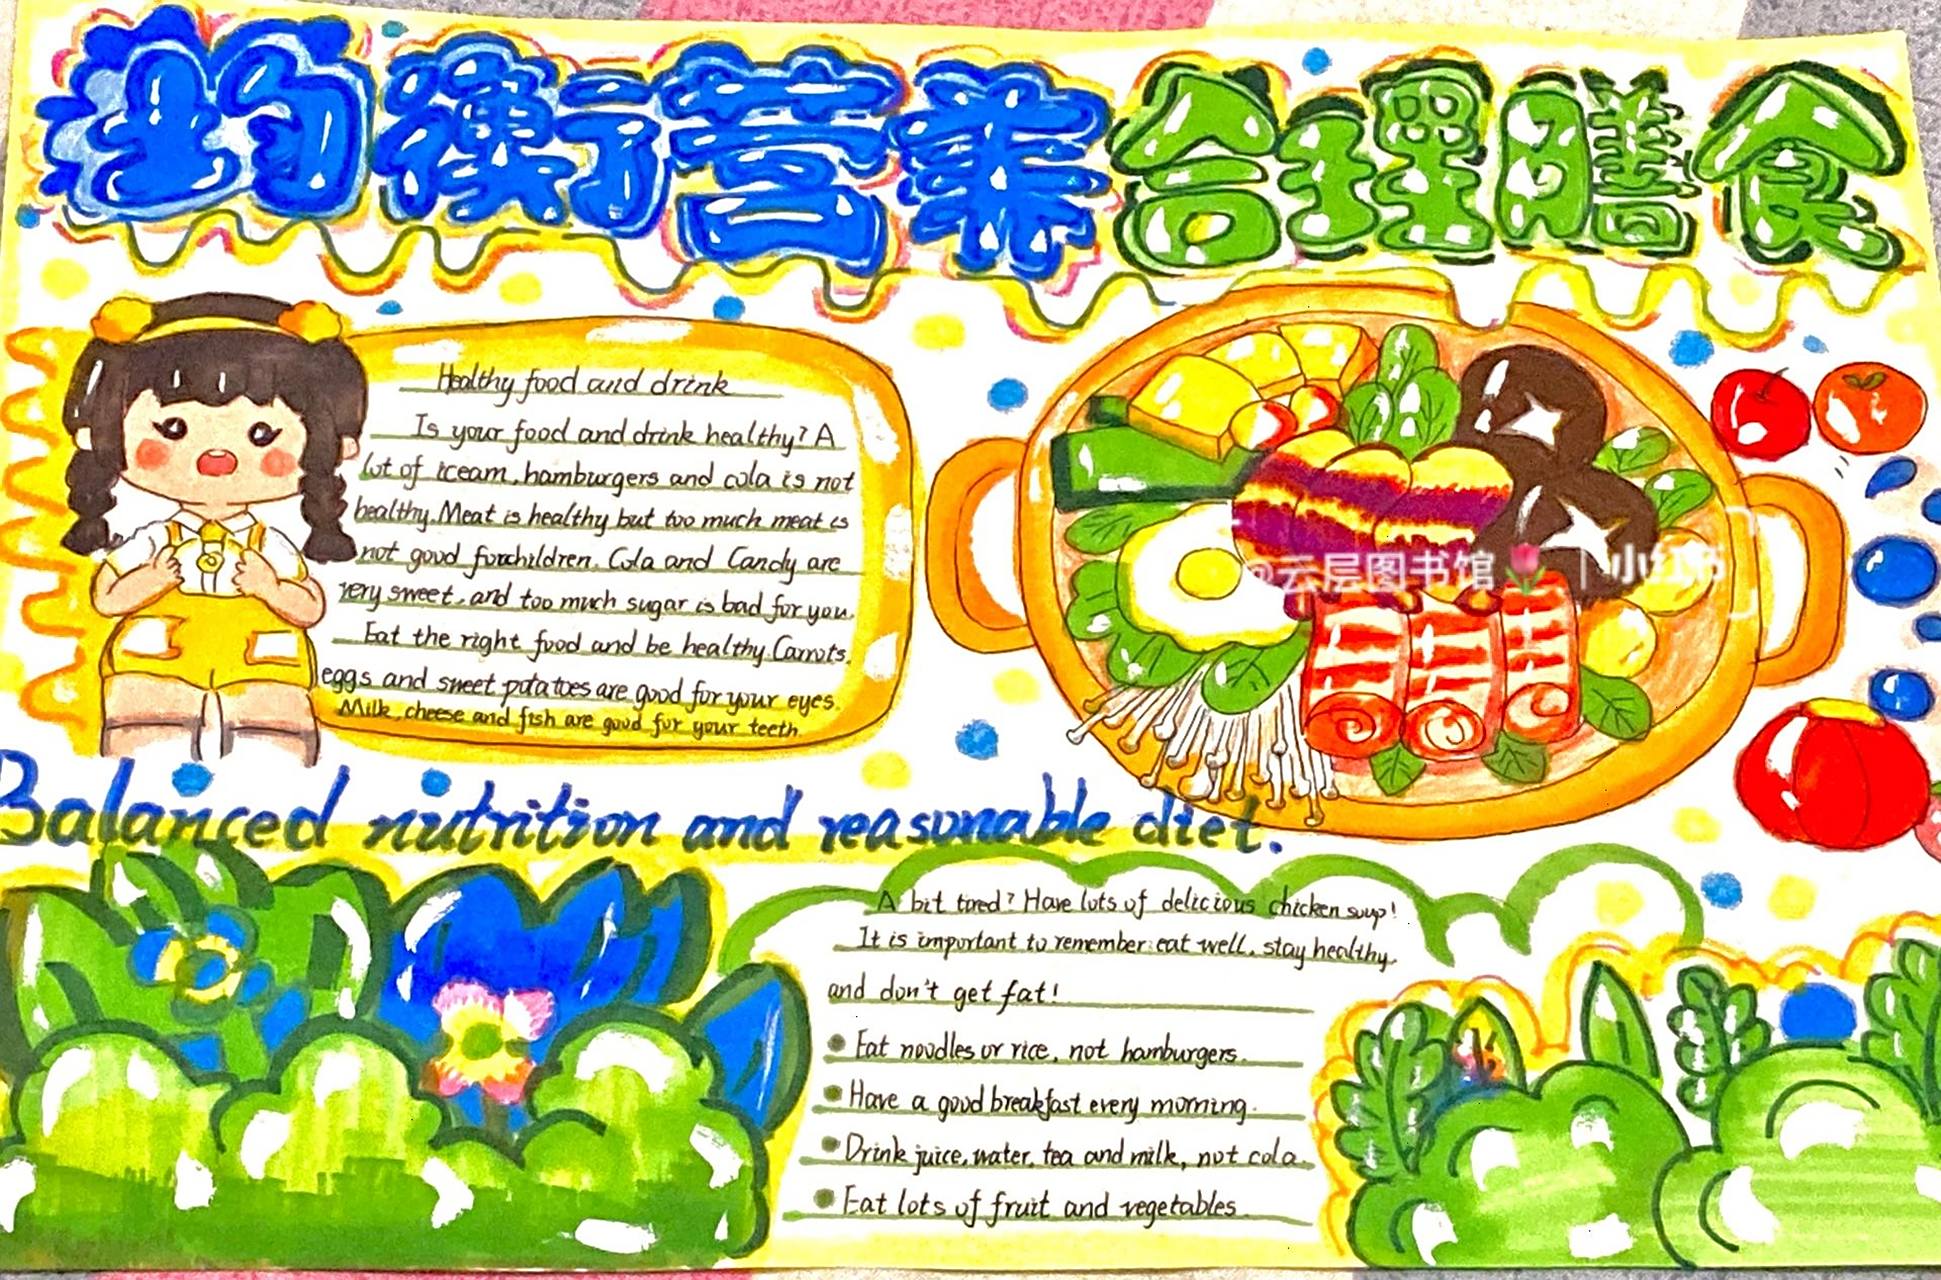 均衡营养 合理膳食
Healthy food and drink
Is your food and drink healthy? A
lot of iceam, hamburgers and cola is not
healthy. Meat is healthy but too much meat is
not good forchildren. Cola and Candy are
very sweet, and too much sugar is bad for you.
Eat the right food and be healthy. Carrots,
eggs and sweet potatoes are good for your eyes.
Milk, cheese and fish are good for your teeth.
@云层图书馆🌷 | 小红书
Balanced nutrition and reasonable diet.
A bit tired? Have lots of delicious chicken soup!
It is important to remember: eat well, stay healthy,
and don't get fat!
• Eat noodles or rice, not hamburgers.
• Have a good breakfast every morning.
• Drink juice, water, tea and milk, not cola.
• Eat lots of fruit and vegetables.